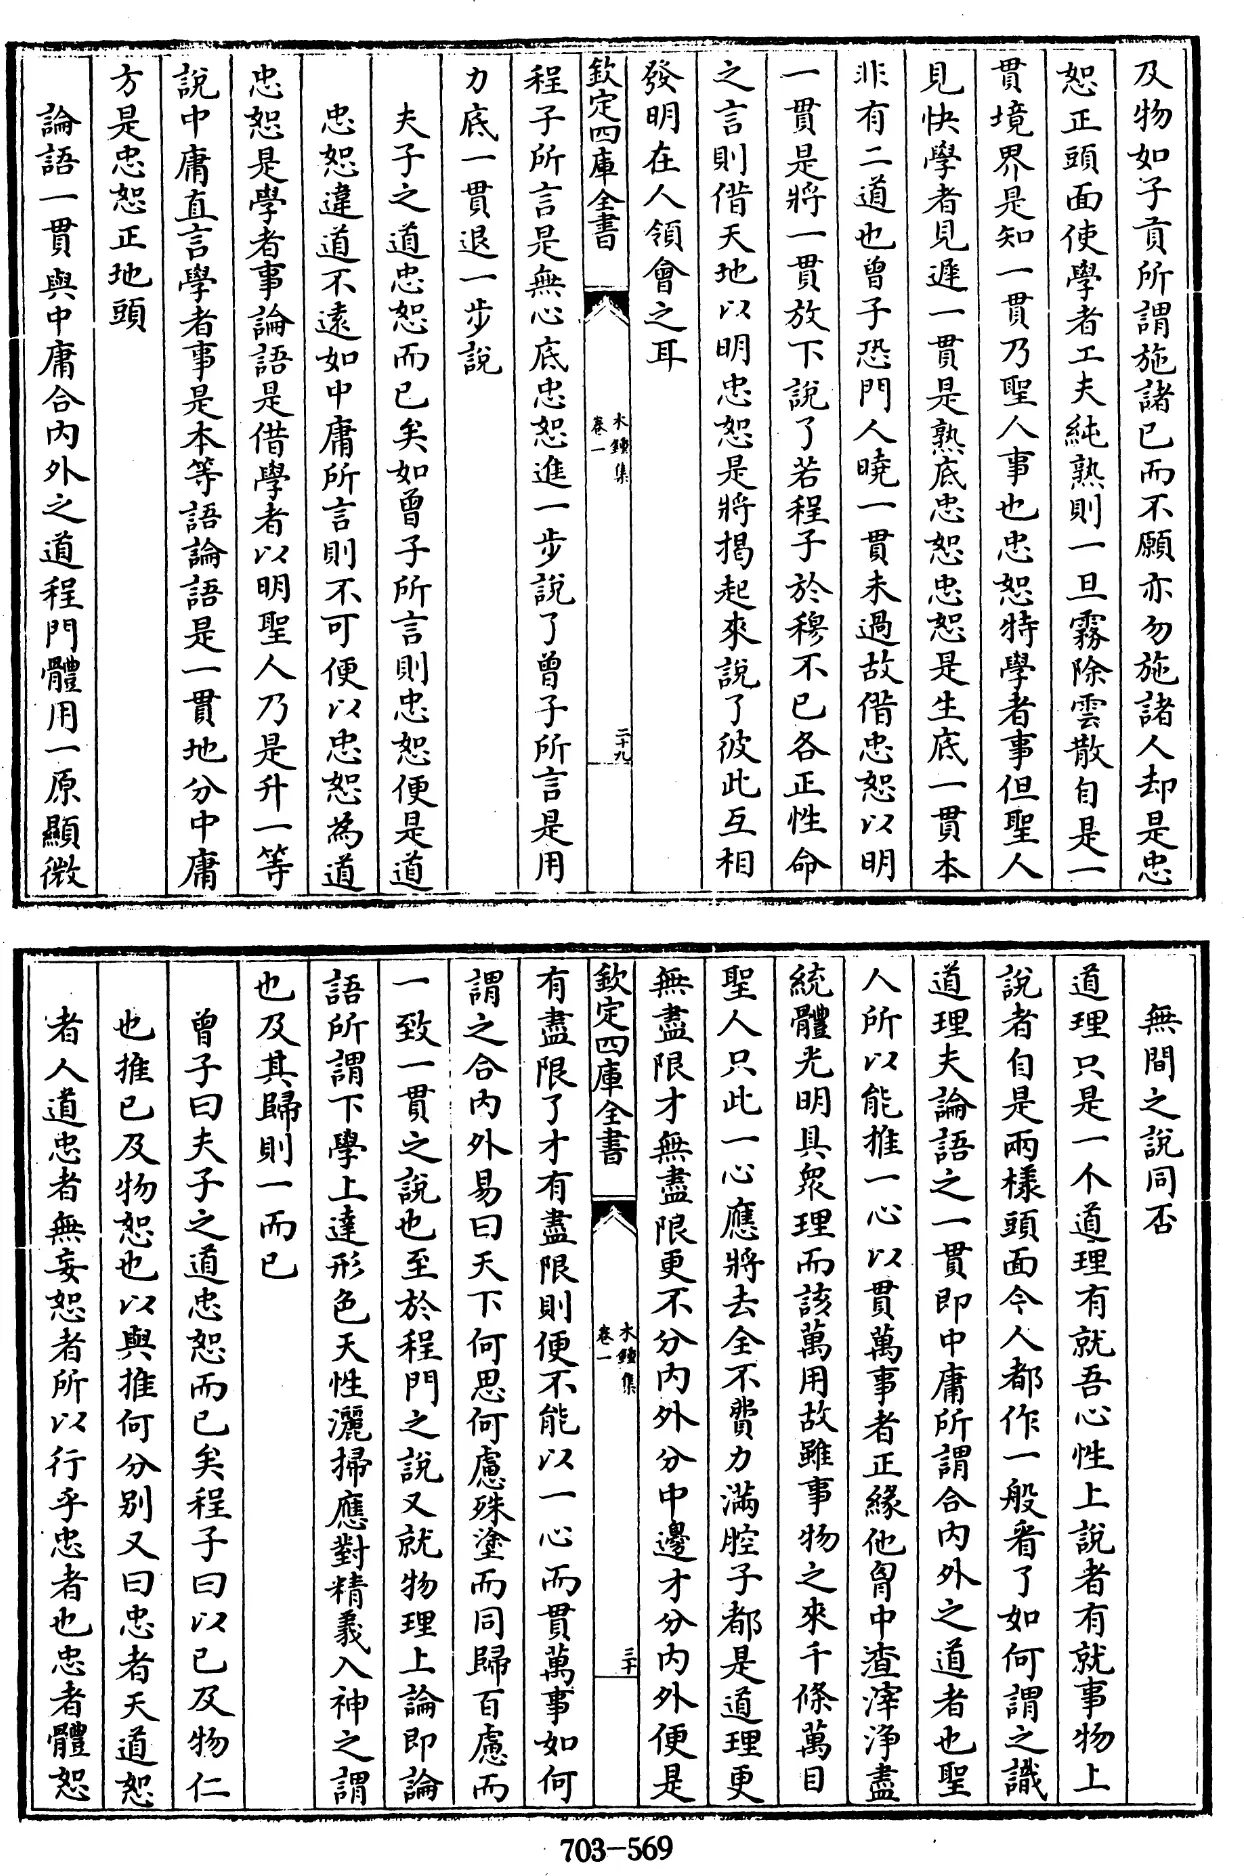 及物如子貢所謂施諸己而不願亦勿施諸人却是忠
恕正頭面使學者工夫純熟則一旦霧除雲散自是一
貫境界是知一貫乃聖人事也忠恕特學者事但聖人
見快學者見遲一貫是熟底忠恕忠恕是生底一貫本
非有二道也曾子恐門人曉一貫未過故借忠恕以明
一貫是將一貫放下說了若程子於穆不已各正性命
之言則借天地以明忠恕是將揭起來說了彼此互相
發明在人領會之耳
欽定四庫全書
木鐘集
卷一
二十九
程子所言是無心底忠恕進一步說了曾子所言是用
力底一貫退一步說
夫子之道忠恕而已矣如曾子所言則忠恕便是道
忠恕違道不遠如中庸所言則不可便以忠恕為道
忠恕是學者事論語是借學者以明聖人乃是升一等
說中庸直言學者事是本等語論語是一貫地分中庸
方是忠恕正地頭
論語一貫與中庸合內外之道程門體用一原顯微
無間之說同否
道理只是一个道理有就吾心性上說者有就事物上
說者自是兩樣頭面今人都作一般看了如何謂之識
道理夫論語之一貫即中庸所謂合內外之道者也聖
人所以能推一心以貫萬事者正緣他胷中查滓淨盡
統體光明具衆理而該萬用故雖事物之來千條萬目
聖人只此一心應將去全不費力滿腔子都是道理更
無盡限才無盡限更不分內外分中邊才分內外便是
欽定四庫全書
木鐘集
卷一
三十
有盡限了才有盡限則便不能以一心而貫萬事如何
謂之合內外易曰天下何思何慮殊塗而同歸百慮而
一致一貫之說也至於程門之說又就物理上論即論
語所謂下學上達形色天性灑掃應對精義入神之謂
也及其歸則一而已
曾子曰夫子之道忠恕而已矣程子曰以己及物仁
也推己及物恕也以與推何分别又曰忠者天道恕
者人道忠者無妄恕者所以行乎忠者也忠者體恕
703-569